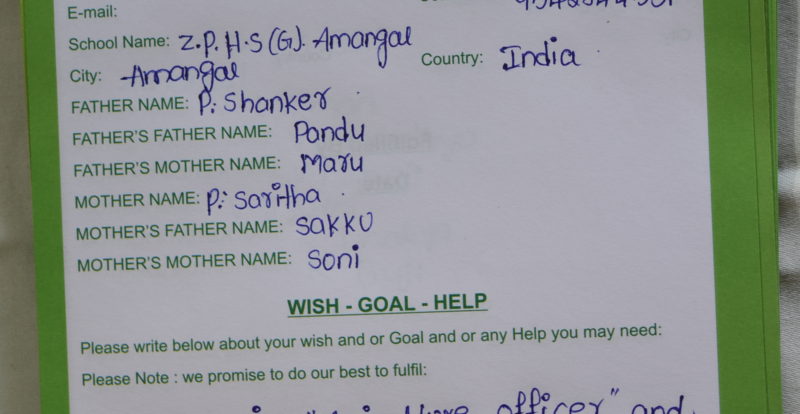 E-mail:
School Name: Z.P.H.S (G). Amangal
City: Amangal Country: India
FATHER NAME: P. Shanker
FATHER'S FATHER NAME: Pandu
FATHER'S MOTHER NAME: Maru
MOTHER NAME: P. Saritha
MOTHER'S FATHER NAME: Sakku
MOTHER'S MOTHER NAME: Soni
WISH - GOAL - HELP
Please write below about your wish and or Goal and or any Help you may need:
Please Note : we promise to do our best to fulfil:
officer" and